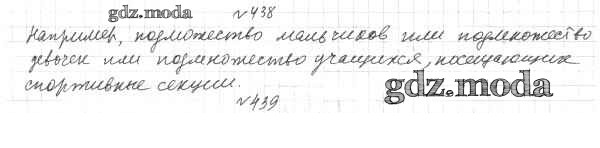 gdz.moda
№438
Например, подмножество мальчиков или подмножество
девочек или подмножество учащихся, посещающих
спортивные секции.
gdz.moda
№439